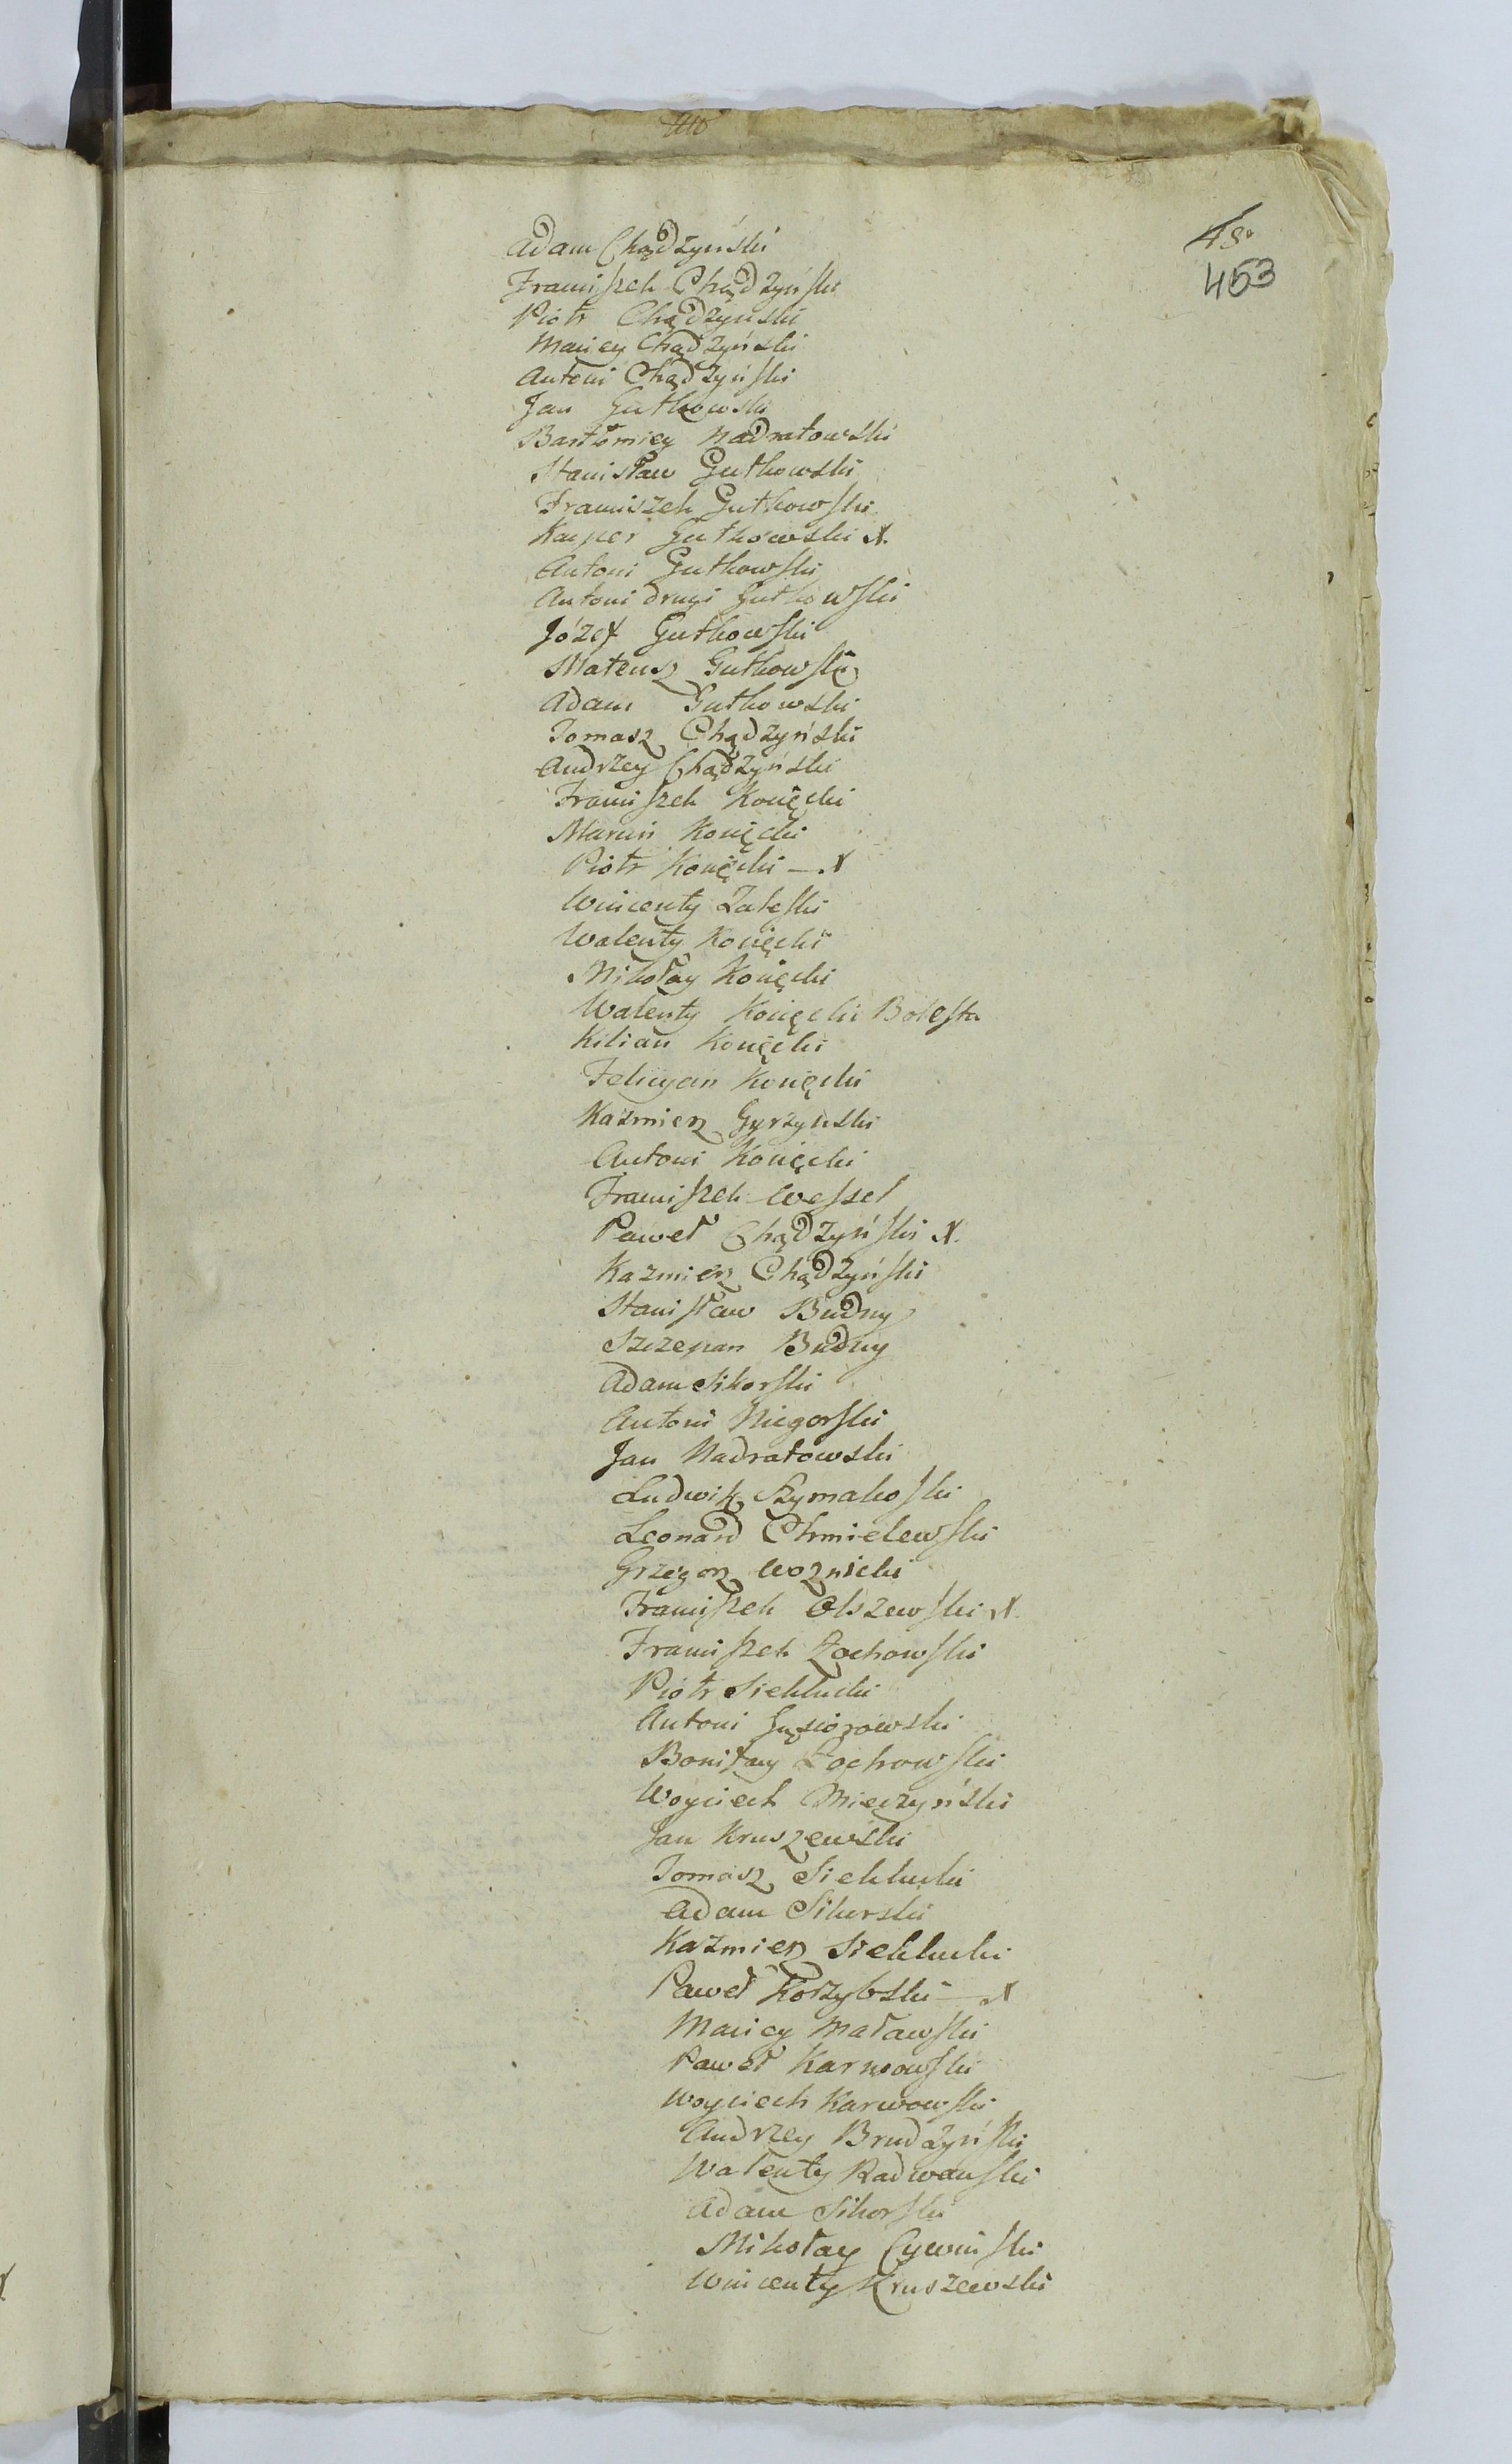 48.
453
Adam Chądzyński
Franciszek Chądzyński
Piotr Chądzyński
Maciey Chądzyński
Antoni Chądzyński
Jan Gutkowski
Bartłomiey Nadratowski
Stanisław Gutkowski
Franciszek Gutkowski
Kacper Gutkowski X.
Antoni Gutkowski
Antoni drugi Gutkowski
Józef Gutkowski
Mateusz Gutkowski
Adam Gutkowski
Tomasz Chądzyński
Andrzey Chądzyński
Franciszek Konęcki
Marcin Konęcki
Piotr Konęcki — X
Wincenty Zaleski
Walenty Konęcki
Mikołay Konęcki
Walenty Konęcki Bolesta
Kilian Konęcki
Felicyan Konęcki
Kazmierz Gyrzynski
Antoni Konęcki
Franciszek Wessel
Paweł Chądzyński X.
Kazmierz Chądzyński
Stanisław Budny
Szczepan Budny
Adam Sikorski
Antoni Niegorski
Jan Nadratowski
Ludwik Szymakoski
Leonard Chmielewski
Grzegorz Woznicki
Franciszek Olszewski X.
Franciszek Żochowski
Piotr Siekłucki
Antoni Gąsiorowski
Bonifacy Żochowski
Woyciech Mieczyński
Jan Kruszewski
Tomasz Siekłucki
Adam Sikorski
Kazmierz Siekłucki
Paweł Korzybski — X
Maciey Małowski
Paweł Karwowski
Woyciech Karwowski
Andrzey Brudzyński
Walenty Radwanski
Adam Sikorski
Mikołay Cywinski
Wincenty Kruszewski